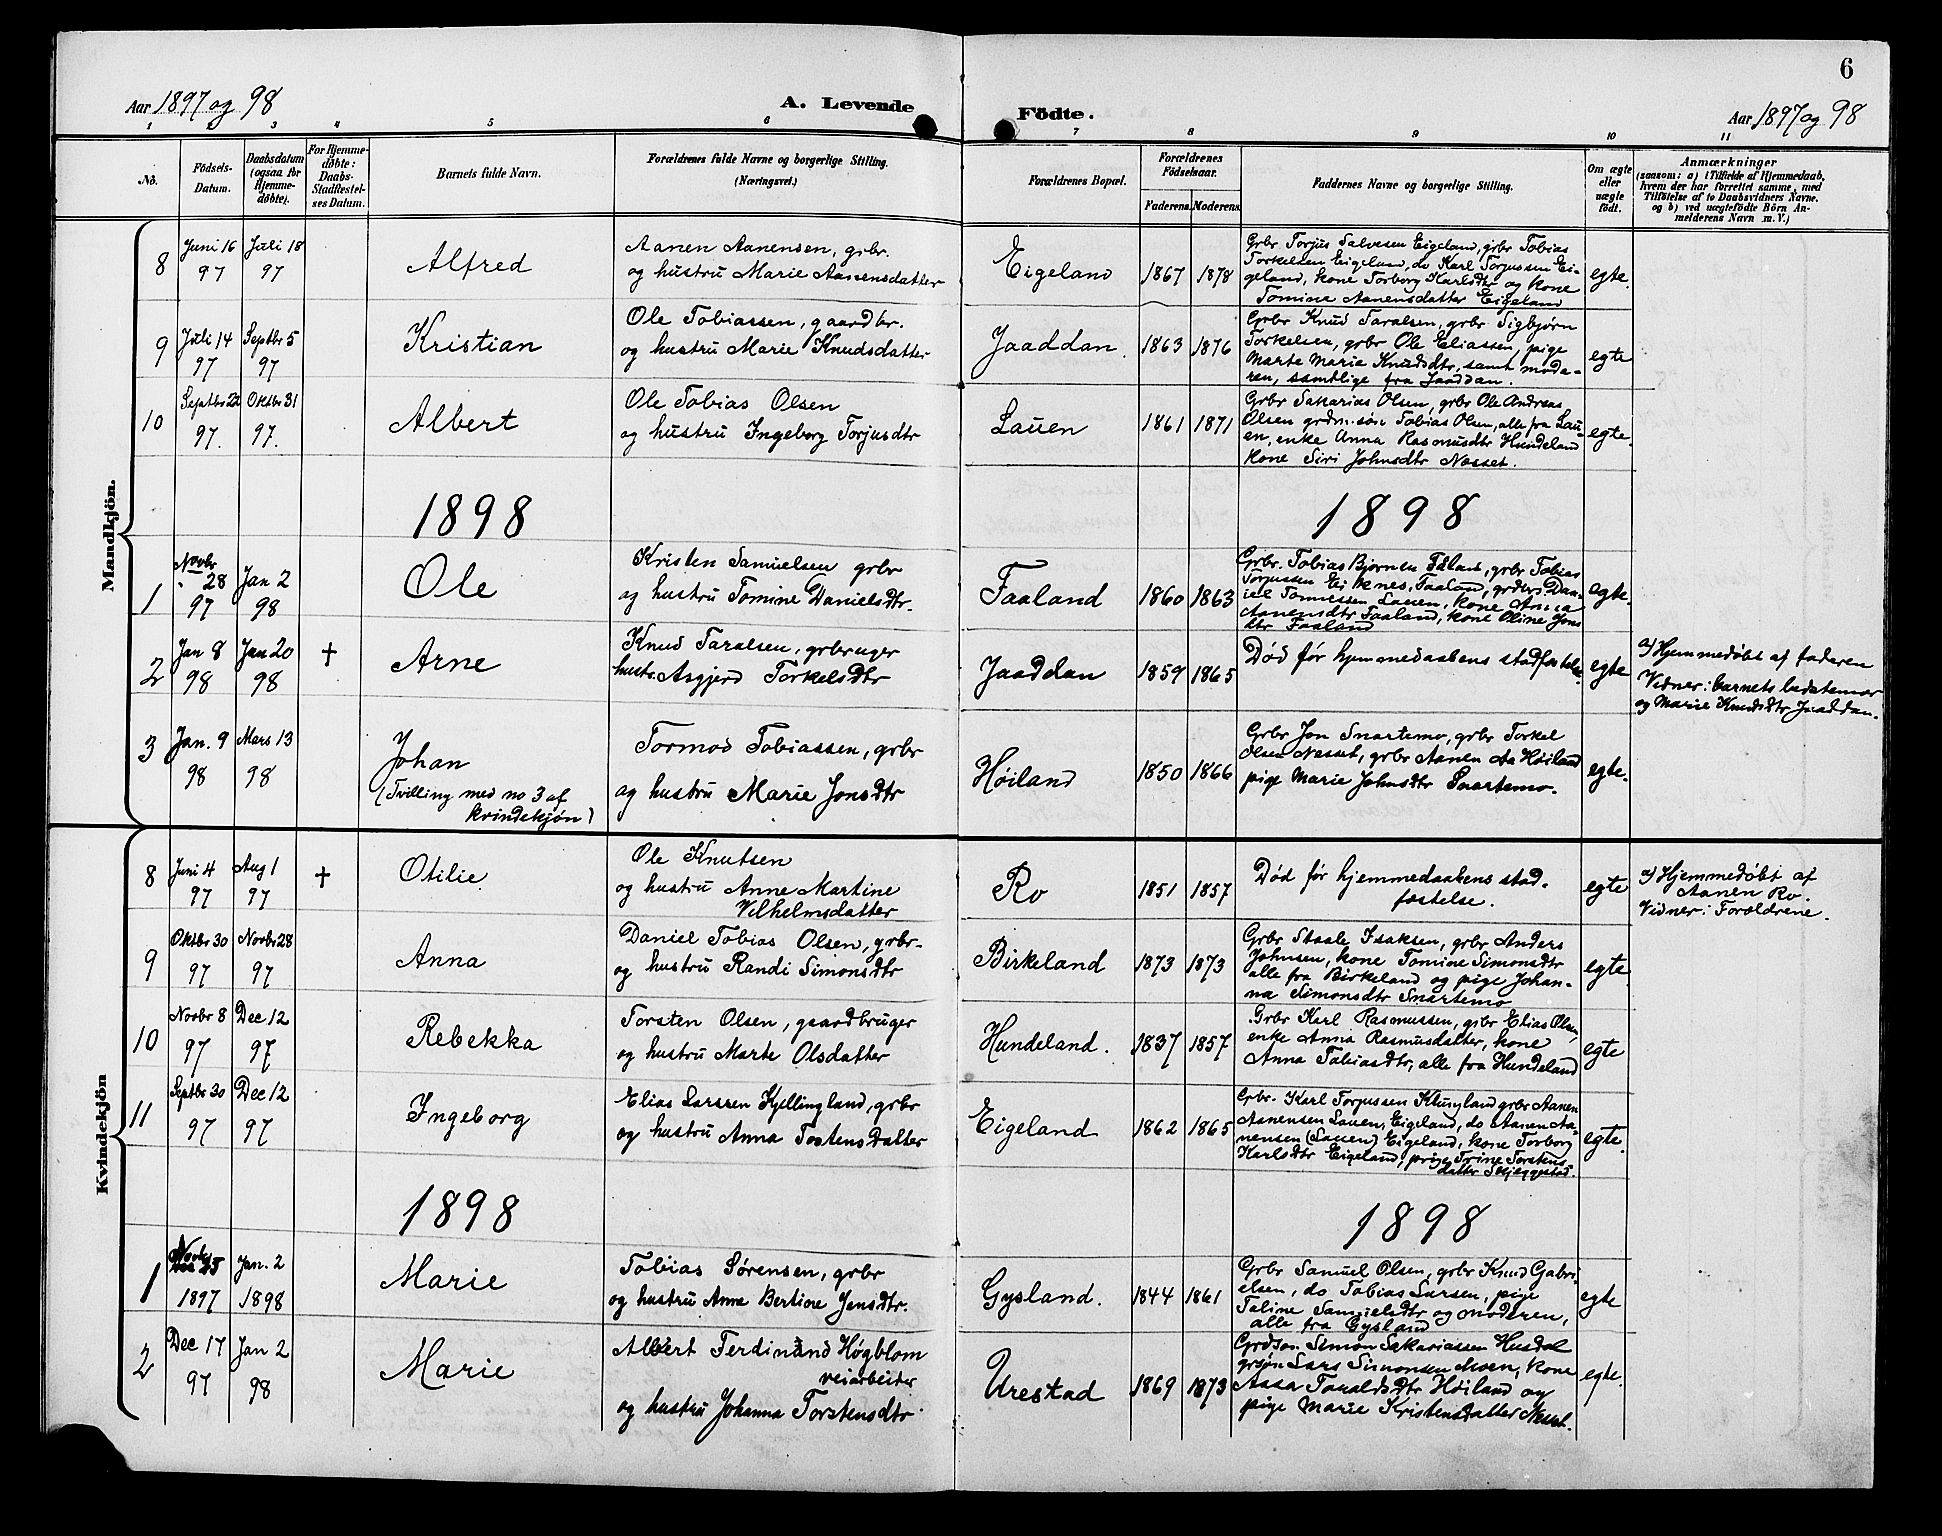 6
Aar 1897 og 98
A. Levende Födte.
Aar 1897 og 98
1 2 3 4 5 6 7 8 9 10 11
No.
Födsels-Datum.
Daabsdatum (ogsaa for Hjemme-døbte).
For Hjemme-døbte: Daabs-Stadfestel-ses Datum.
Barnets fulde Navn.
Forældrenes fulde Navne og borgerlige Stilling. (Næringsvei.)
Forældrenes Bopæl.
Forældrenes Födselsaar.
Faderens. Moderens.
Faddernes Navne og borgerlige Stilling.
Om ægte eller uægte født.
Anmærkninger
(saasom: a) i Tilfælde af Hjemmedaab, hvem der har forrettet samme, med Tilföielse af to Daabsvidners Navne. og b) ved uægtefödte Börn An-melderens Navn m. V.)
Mandkjön.
8 Juni 16 97 Juli 18 97 Alfred
Aanen Aanensen, grbr.
og hustru Marie Aanensdatter
Eigeland 1867 1878
Grbr Torjus Salvesen Eigeland, grbr Tobias
Torkelsen Eigeland, do Karl Torjussen Ei-
geland, kone Torborg Karlsdtr og kone
Tomine Aanensdatter Eigeland
egte.
9 Juli 14 97 Septbr 5 97 Kristian
Ole Tobiassen, gaardbr.
og hustru Marie Knudsdatter
Jaaddan. 1863 1876
Grbr Knud Taralsen, grbr Sigbjørn
Torkelsen, grbr Ole Eliassen, pige
Marte Marie Knudsdtr, samt mode-
ren, samtlige fra Jaaddan.
egte
10 Septbr 22 97. Oktbr 31 97. Albert
Ole Tobias Olsen
og hustru Ingeborg Torjusdtr
Lauen 1861 1871
Grbr Sakarias Olsen, grbr Ole Andreas
Olsen grdm.søn Tobias Olsen, alle fra Lau-
en, enke Anna Rasmusdtr Hundeland
kone Siri Johnsdtr Nesset.
egte.
1898 1898
1 Novbr 28 97 Jan 2 98 Ole
Kristen Samuelsen grbr
og hustru Tomine Danielsdtr.
Faaland 1860 1863
Grbr. Tobias Bjornsen, grbr Tobias
Torjussen Eiknes, Faaland, grders Dan-
iel Tønnessen Lauen, kone Anna
Aanensdtr Faaland, kone Oline Jons
dtr Faaland
egte.
2 Jan 8 98 Jan 20 98 † Arne
Knud Taralsen, grbruger
hustr. Asgjerd Torkelsdtr
Jaaddan 1859 1865
Død før hjemmedaabens stadfæstelse.
egte
a) Hjemmedøbt af faderen
Vidner: barnets bedstemor
og Marie Knudsdtr Jaaddan.
3 Jan. 9 98 Mars 13 98 Johan
(Tvilling med no 3 af
kvindekjøn)
Tormod Tobiassen, grbr
og hustru Marie Jonsdtr
Høiland 1850 1866
Grbr Jon Snartemo, grbr Torkel
Olsen Nesset, grbr Aanen Aa Høiland
pige Marie Johnsdtr Snartemo.
egte.
Kvindekjön
8 Juni 4 97 Aug 1 97 † Otilie
Ole Knutsen
og hustru Anne Martine
Vilhelmsdatter
Ro 1851 1857
Død før hjemmedaabens stad-
fæstelse.
egte
a) Hjemmedøbt af
Aanen Ro.
Vidner: Forældrene.
9 Oktbr 30 97 Novbr 28 97 Anna
Daniel Tobias Olsen, grbr-
og hustru Randi Simonsdtr
Birkeland 1873 1873
Grbr Staale Isaksen, grbr Anders
Johnsen, kone Tomine Simonsdtr
alle fra Birkeland og pige Johan-
na Simonsdtr Snartemo
egte
10 Novbr 8 97 Dec 12 97 Rebekka
Torsten Olsen, gaardbruger
og hustru Marte Olsdatter
Hundeland. 1837 1857
Grbr Karl Rasmussen, grbr Elias Olsen,
enke Anna Rasmusdatter, kone
Anna Tobiasdtr, alle fra Hundeland
egte
11 Septbr 30 97 Dec 12 97 Ingeborg
Elias Larsen Kjellingland, grbr
og hustru Anna Tostensdatter
Eigeland 1862 1865
Grbr. Karl Torjussen Klungland grbr Aanen
Aanensen Lauen, Eigeland, do Aanen Aa-
nensen (Lauen) Eigeland, kone Torborg
Karlsdtr Eigeland, pige Trine Torstens
datter Skjeggestad.
egte.
1898 1898
1 Novbr 25 1897 Jan. 2 1898 Marie
Tobias Sørensen, grbr
og hustru Anne Bertine Jensdtr.
Gysland. 1844 1861
Grbr Samuel Olsen, grbr Knud Gabri-
elsen, do Tobias Larsen, pige
Taline Samuelsdtr og moderen,
alle fra Gysland
egte
2 Dec 17 97 Jan 2 98 Marie
Albert Ferdinand Høgblom
veiarbeider
og hustru Johanna Torstensdtr
Urestad 1869 1873
Grdson. Simon Sakariassen Husdal
grsøn Lars Simonsen Moen, kone
Aasa Taraldsdtr Høiland og
pige Marie Kristensdatter Nesset.
egte.